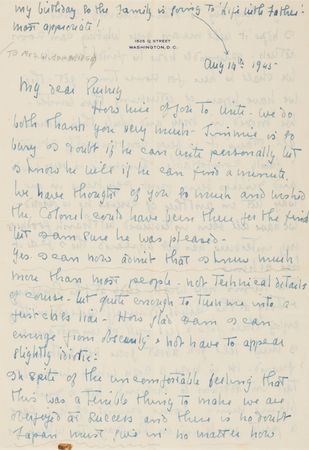 my birthday so the family is going to "Life with Father"
most appropriate!
1505 Q STREET
WASHINGTON, D.C.
(To Mrs.
Aug 14th 1945
My dear
How nice of you to write - we do
both thank you very much - Jimmie is so
busy I doubt if he can write personally but
I know he will if he can find a minute.
We have thought of you so much and wished
the Colonel could have been there for the final
but I am sure he was pleased -
Yes I can now admit that I knew much
more than most people - not technical details
of course - but quite enough to turn me into a
first class liar - How glad I am I can
emerge from obscurity & not have to appear
slightly idiotic.
In spite of the uncomfortable feeling that
this was a terrible thing to make we are
overjoyed at success and there is no doubt
Japan must "give in" no matter how